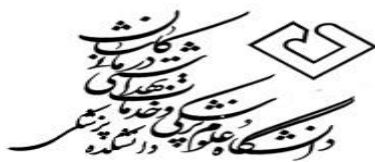 دانشگاه علوم پزشکی و خدمات بهداشتی درمانی گلستان
دانشکده پزشکی